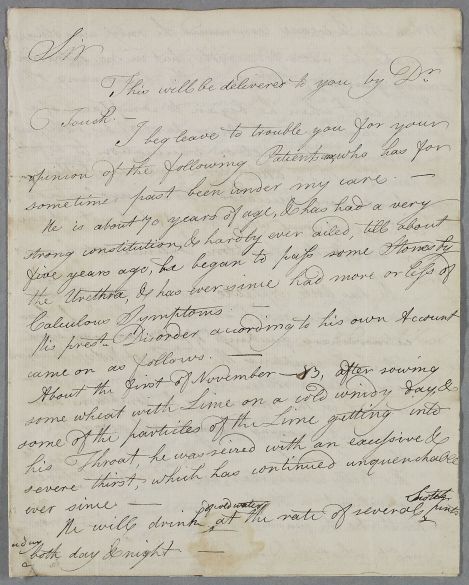 Sir
This will be delivered to you by Dr
Touch. —
I beg leave to trouble you for your
opinion of the following Patient who has for
sometime past been under my care. —
He is about 70 years of age, & has had a very
strong constitution, & hardly ever ailed, till about
five years ago, he began to pass some Stones by
the Urethra, & has ever since had more or less of
Calculous Symptoms. —
His prest. Disorder according to his own Account
came on as follows. —
About the first of November — 83, after sowing
some wheat with Lime on a cold windy day, &
some of the particles of the Lime getting into
his Throat, he was seized with an excessive &
severe thirst, which has continued unquenchable
ever since —
of cold water Scotch
He will drink at the rate of several pints
a day
both day & night —